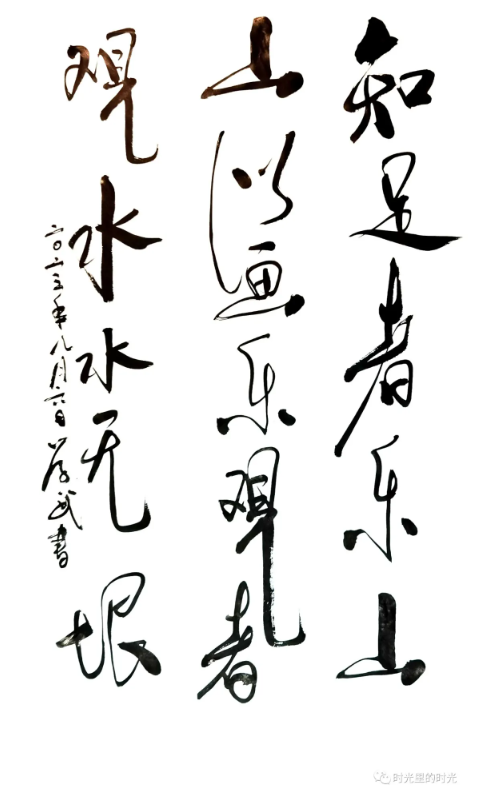 知足者乐山
山似画乐观者
观水水无垠
二〇二三年八月六日 武书
时光里的时光